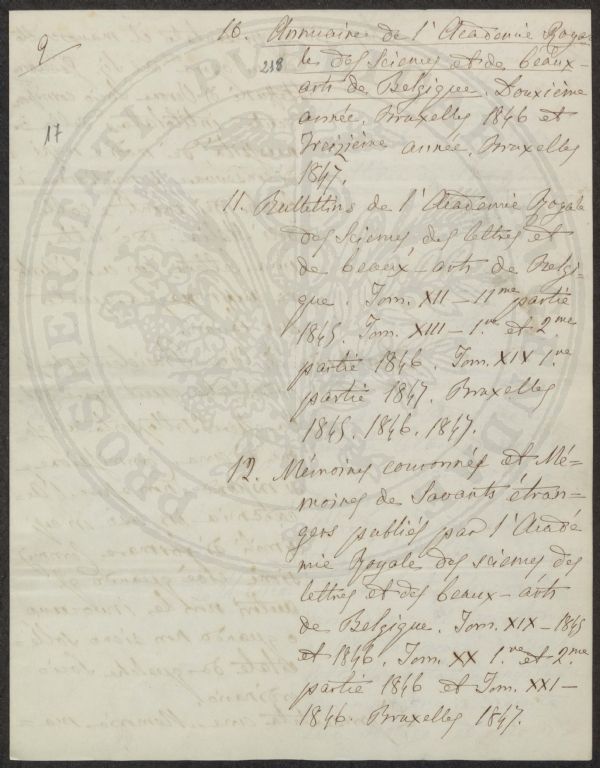 9
17
10. Annuaire de l'Academie Roya-
218
le des Sciences et de beaux-
arts de Belgique. Douxième
année. Bruxelles 1846 et
Treizième année. Bruxelles
1847.
11. Bullettins de l'Academie Royale
des Sciences des lettres et
de beaux-arts de Belgi-
que. Tom. XII - 11me partie
1845. Tom. XIII - 1.re et 2.me
partie 1846. Tom. XIV 1.re
partie 1847. Bruxelles
1845. 1846. 1847.
12. Mémoires couronnés et Mé-
moires de Savants étran-
gers publiés par l'Acadé
mie Royale des sciences des
lettres et des beaux-arts
de Belgique. Tom. XIX - 1845
et 1846. Tom. XX 1.re et 2.me
partie 1846 et Tom. XXI -
1846. Bruxelles 1847.
PROSPERITATI PUBLICAE